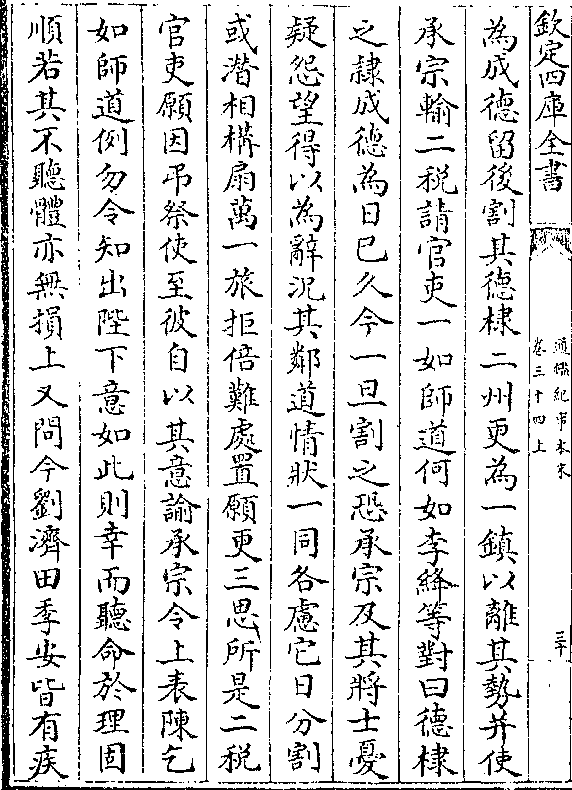 欽定四庫全書
通鑑紀事本末
卷三十四上
三十
為成德留後割其德棣二州更為一鎮以離其勢并使
承宗輸二稅請官吏一如師道何如李絳等對曰德棣
之隸成德為日已久今一旦割之恐承宗及其將士憂
疑怨望得以為辭況其鄰道情狀一同各慮它日分割
或潛相構扇萬一旅拒倍難處置願更三思所是二稅
官吏願因弔祭使至彼自以其意諭承宗令上表陳乞
如師道例勿令知出陛下意如此則幸而聽命於理固
順若其不聽體亦無損上又問今劉濟田季安皆有疾